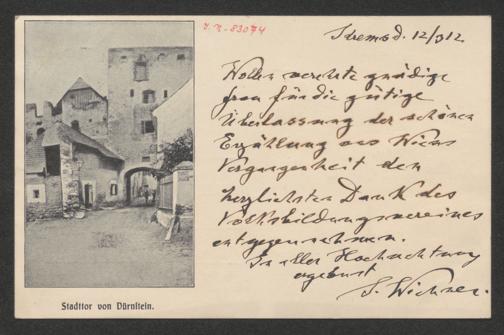 J. N. 83074
Krems d. 12/3 12.
Wollen verehrte gnädige
Frau für die gütige
Überlassung der schönen
Erzählung aus Wiens
Vergangenheit den
herzlichsten Dank des
Volksbildungsvereines
entgegennehmen.
In aller Hochachtung
ergebenst
J. Wichner.
Stadttor von Dürnstein.